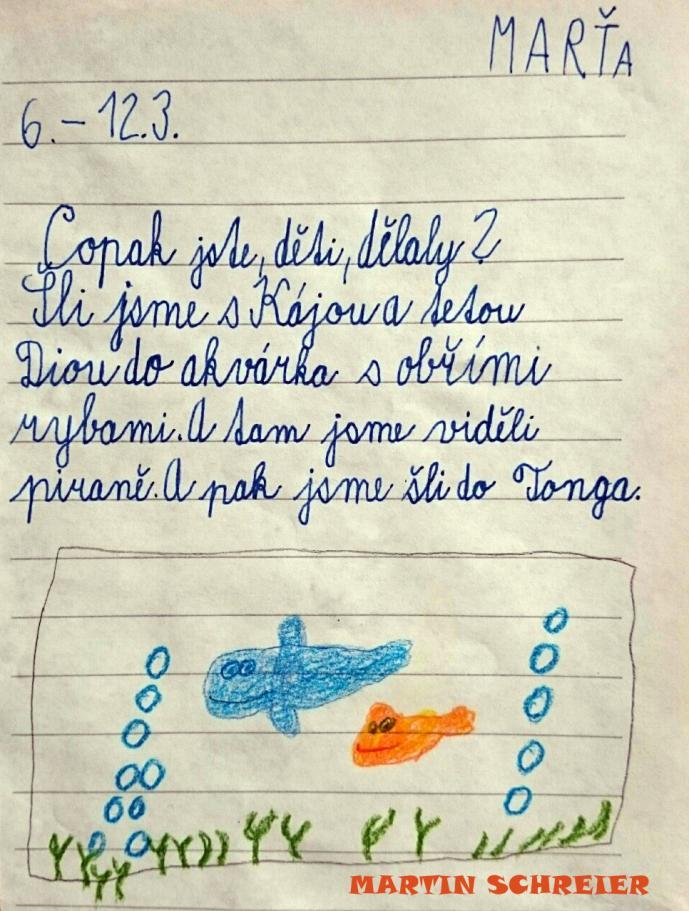 MARŤA
6.-12.3.
Copak jste, děti, dělaly?
Šli jsme s Kájou a tetou
Diou do akvárka s obřími
rybami. A tam jsme viděli
piraně. A pak jsme šli do Tonga.
MARTIN SCHREIER